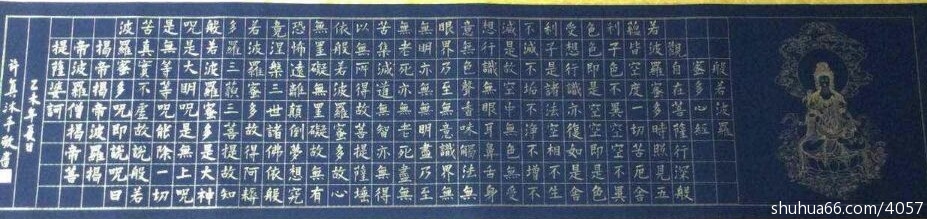 般若波羅
蜜多心經
觀自在菩薩行深般
若波羅蜜多時照見五
蘊皆空度一切苦厄舍
利子色不異空空不異
色色即是空空即是色
受想行識亦復如是舍
利子是諸法空相不生
不滅不垢不淨不增不
減是故空中無色無受
想行識無眼耳鼻舌身
意無色聲香味觸法無
眼界乃至無意識界無
無明亦無無明盡乃至
無老死亦無老死盡無
苦集滅道無智亦無得
以無所得故菩提薩埵
依般若波羅蜜多故心
無罣礙無罣礙故無有
恐怖遠離顛倒夢想究
竟涅槃三世諸佛依般
若波羅蜜多故得阿耨
多羅三藐三菩提故知
般若波羅蜜多是大神
咒是大明咒是無上咒
是無等等咒能除一切
苦真實不虛故說般若
波羅蜜多咒即說咒曰
揭帝揭帝波羅揭
帝波羅僧揭帝菩
提薩婆訶
乙未年夏日
許真沐手敬書
shuhua66.com/4057